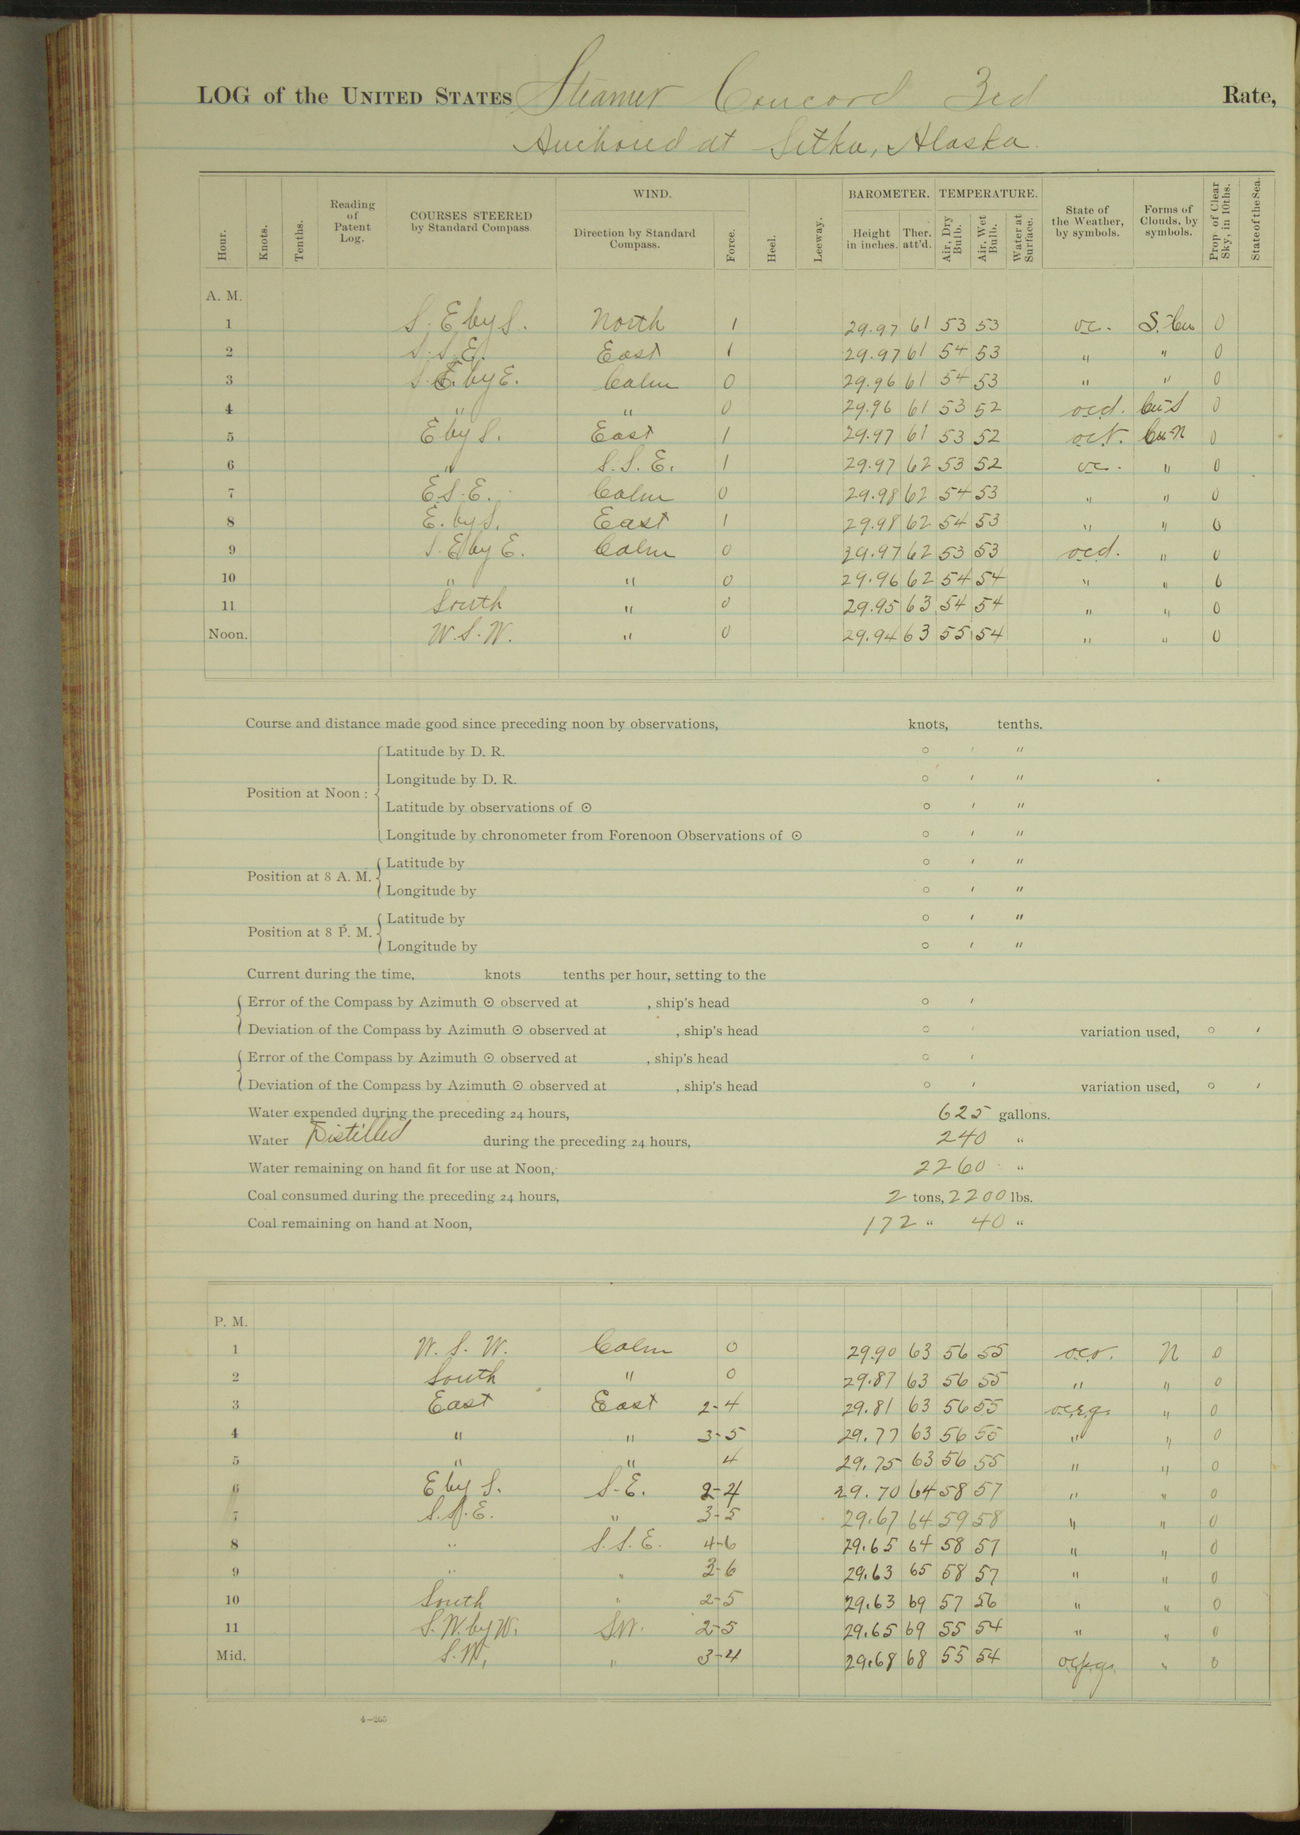 LOG of the UNITED STATES Steamer Concord 3rd Rate,
Anchored at Sitka, Alaska.
Hour. Knots. Tenths. Reading of Patent Log. COURSES STEERED by Standard Compass. WIND. Direction by Standard Compass. Force. Heel. Leeway. BAROMETER. Height in inches. Ther. att'd. TEMPERATURE. Air, Dry Bulb. Air, Wet Bulb. Water at Surface. State of the Weather, by symbols. Forms of Clouds, by symbols. Prop. of Clear Sky, in 10ths. State of the Sea.
A. M.
1 S. E by S. North 1 29.97 61 53 53 oc. S.-Cu 0
2 S. S. E. East 1 29.97 61 54 53 " " 0
3 S. E. by E. Calm 0 29.96 61 54 53 " " 0
4 " " 0 29.96 61 53 52 ocd. Cu-S 0
5 E by S. East 1 29.97 61 53 52 Cu-N 0
6 " S. S. E. 1 29.97 62 53 52 oc. " 0
7 E.S.E. Calm 0 29.98 62 54 53 " " 0
8 E. by S. East 1 29.98 62 54 53 " " 0
9 S. E by E. Calm 0 29.97 62 53 53 ocd. " 0
10 " " 0 29.96 62 54 54 " " 0
11 South " 0 29.95 63 54 54 " " 0
Noon. W. S. W. " 0 29.94 63 55 54 " " 0
Course and distance made good since preceding noon by observations, knots, tenths.
Position at Noon:
Latitude by D. R. ° ′ ″
Longitude by D. R. ° ′ ″
Latitude by observations of ⊙ ° ′ ″
Longitude by chronometer from Forenoon Observations of ⊙ ° ′ ″
Position at 8 A. M.
Latitude by ° ′ ″
Longitude by ° ′ ″
Position at 8 P. M.
Latitude by ° ′ ″
Longitude by ° ′ ″
Current during the time, knots tenths per hour, setting to the
Error of the Compass by Azimuth ⊙ observed at , ship's head ° ′
Deviation of the Compass by Azimuth ⊙ observed at , ship's head ° ′ variation used, ° ′
Error of the Compass by Azimuth ⊙ observed at , ship's head ° ′
Deviation of the Compass by Azimuth ⊙ observed at , ship's head ° ′ variation used, ° ′
Water expended during the preceding 24 hours, 625 gallons.
Water Distilled during the preceding 24 hours, 240 "
Water remaining on hand fit for use at Noon, 2260 "
Coal consumed during the preceding 24 hours, 2 tons, 2200 lbs.
Coal remaining on hand at Noon, 172 " 40 "
P. M.
1 W. S. W. Calm 0 29.90 63 56 55 N 0
2 South " 0 29.87 63 56 55 " " 0
3 East East 2-4 29.81 63 56 55 " 0
4 " " 3-5 29.77 63 56 55 " " 0
5 " " 4 29.75 63 56 55 " " 0
6 E by S. S.E. 2-4 29.70 64 58 57 " " 0
7 S.S.E. " 3-5 29.67 64 59 58 " " 0
8 " S. S. E. 4-6 29.65 64 58 57 " " 0
9 " " 3-6 29.63 65 58 57 " " 0
10 South " 2-5 29.63 69 57 56 " " 0
11 S. W. by W. S.W. 2-5 29.65 69 55 54 " " 0
Mid. S.W. " 3-4 29.68 68 55 54 " 0
4-265